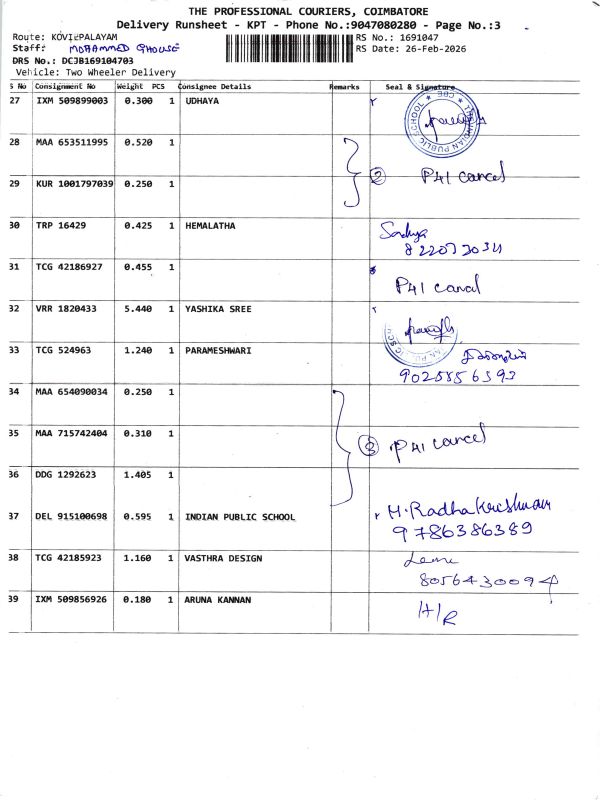 THE PROFESSIONAL COURIERS, COIMBATORE
Delivery Runsheet - KPT - Phone No.:9047080280 - Page No.:3
Route: KOVILPALAYAM RS No.: 1691047
Staff: MOHAMMED GHOUSE RS Date: 26-Feb-2026
DRS No.: DCJB169104703
Vehicle: Two Wheeler Delivery
S No Consignment No Weight PCS Consignee Details Remarks Seal & Signature
27 IXM 509899003 0.300 1 UDHAYA
THE INDIAN PUBLIC SCHOOL ★ CBE ★
28 MAA 653511995 0.520 1
29 KUR 1001797039 0.250 1 ② P41 cancel
30 TRP 16429 0.425 1 HEMALATHA Sandhya
31 TCG 42186927 0.455 1
P41 cancel
32 VRR 1820433 5.440 1 YASHIKA SREE
33 TCG 524963 1.240 1 PARAMESHWARI
9025856593
34 MAA 654090034 0.250 1
35 MAA 715742404 0.310 1 ③ P41 cancel
36 DDG 1292623 1.405 1
37 DEL 915100698 0.595 1 INDIAN PUBLIC SCHOOL M.Radhakrishnan
9786386389
38 TCG 42185923 1.160 1 VASTHRA DESIGN
8056430094
39 IXM 509856926 0.180 1 ARUNA KANNAN H/R